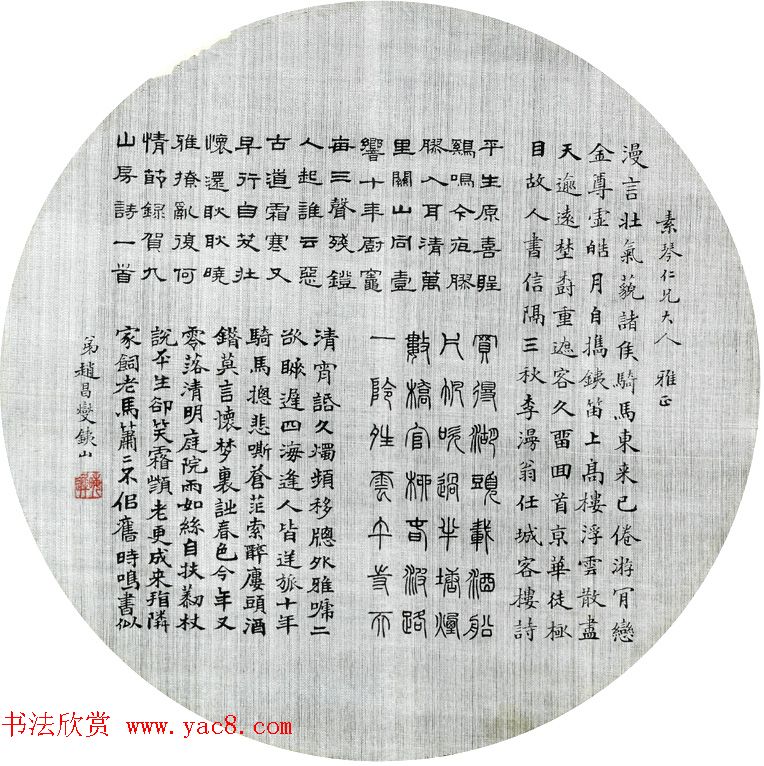 素琴仁兄大人 雅正
漫言壯氣藐諸侯騎馬東来已倦游肎戀
金尊虛皓月自攜銕笛上髙樓浮雲散盡
天逾遠埜樹重遮客久畱回首京華徒極
目故人書信隔三秋李翁任城客樓詩
平生原喜聒
鷄鳴今夜膠
膠入耳清萬
里關山同壹
響十年厨竈
每三聲殘鐙
人起誰云惡
古道霜寒又
早行自笑壯
懷還耿耿曉
雅撩亂復何
情節錄賀九
山房詩一首
買得湖頭載酒船
片帆吹過半塘煙
數橋官柳春波路
一雲天
清宵話久燭頻移牕外雅嗁二
欲遲四海逢人皆逆旅十年
騎馬摠悲嘶蒼茫索醉廔頭酒
莫言懷夢裏春色今年又
零落清明庭院雨如絲自扶杖
說平生卻笑霜顛老更成來隣
家飼老馬蕭二不佀舊時鳴書似
弟趙昌燮銕山
书法欣赏 www.yac8.com